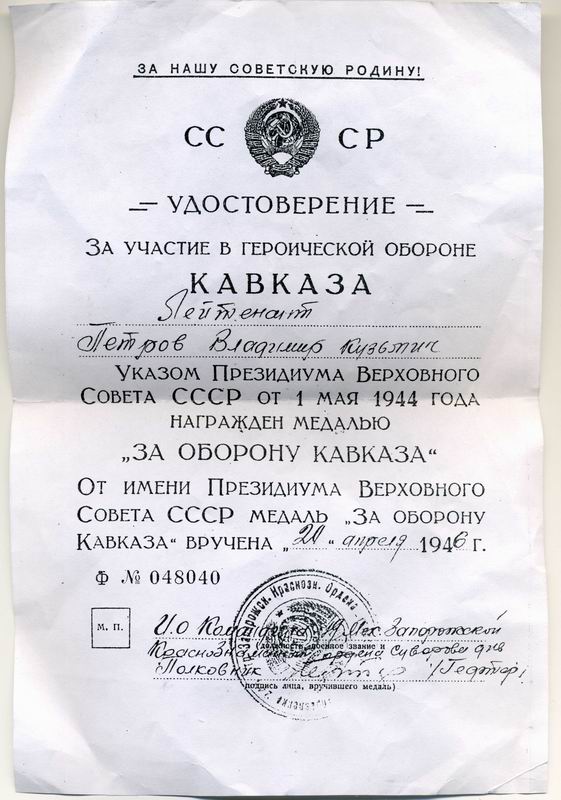 ЗА НАШУ СОВЕТСКУЮ РОДИНУ!
СС СР
УДОСТОВЕРЕНИЕ
ЗА УЧАСТИЕ В ГЕРОИЧЕСКОЙ ОБОРОНЕ
КАВКАЗА
Лейтенант
Петров Владимир Кузьмич
УКАЗОМ ПРЕЗИДИУМА ВЕРХОВНОГО
СОВЕТА СССР ОТ 1 МАЯ 1944 ГОДА
НАГРАЖДЕН МЕДАЛЬЮ
„ЗА ОБОРОНУ КАВКАЗА“
ОТ ИМЕНИ ПРЕЗИДИУМА ВЕРХОВНОГО
СОВЕТА СССР МЕДАЛЬ „ЗА ОБОРОНУ
КАВКАЗА“ ВРУЧЕНА „20“ апреля 1946 г.
Ф № 048040
М. П.
И.О Командира Мех. Запорожской
(должность, военное звание и
Краснозн. ордена Суворова див
Полковник
подпись лица, вручившего медаль)
Краснозн. Ордена